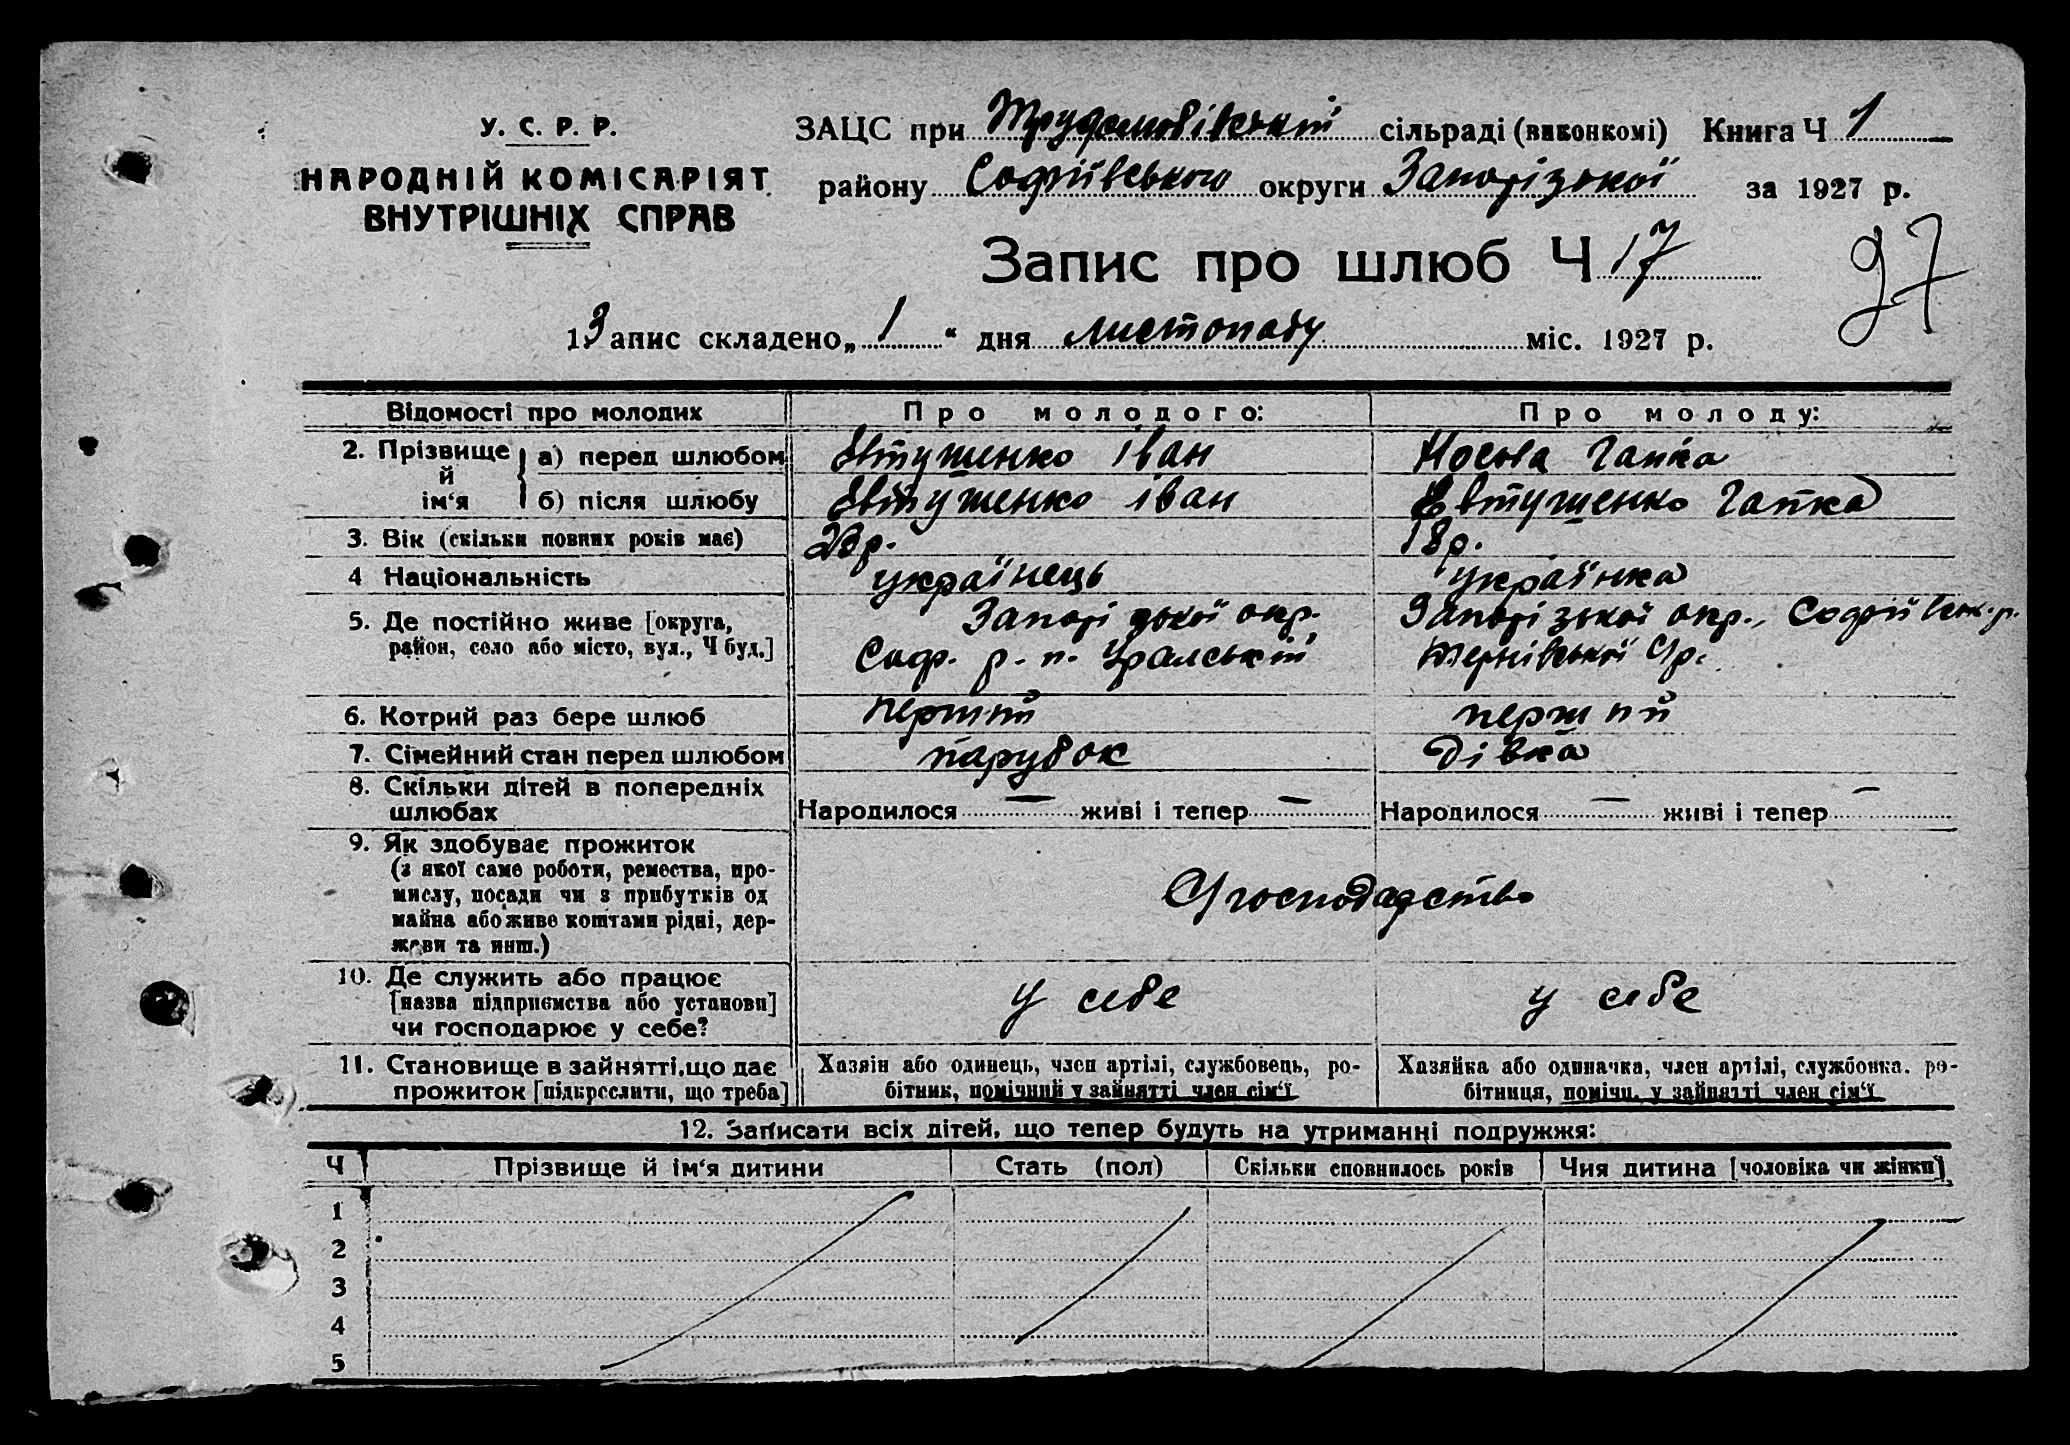 У. С. Р. Р.
НАРОДНІЙ КОМІСАРІЯТ
ВНУТРІШНІХ СПРАВ
ЗАЦС при сільраді (виконкомі) Книга Ч 1
району Софіївського округи Запорізької за 1927 р.
Запис про шлюб Ч 17
97
1. Запис складено „ 1 “ дня листопаду міс. 1927 р.
Відомості про молодих Про молодого: Про молоду:
2. Прізвище й ім‘я а) перед шлюбом Євтушенко Іван Носова Гапка
б) після шлюбу Євтушенко Іван Євтушенко Гапка
3. Вік (скільки повних років має) 23 р. 18 р.
4 Національність українець українка
5. Де постійно живе [округа, Запорізької окр. Запорізької окр., Софіївськ. р.
район, село або місто, вул., Ч буд.] Соф. р. п. Уральскій Тернівської
6. Котрий раз бере шлюб перший перший
7. Сімейний стан перед шлюбом парубок дівка
8. Скільки дітей в попередніх
шлюбах Народилося — живі і тепер — Народилося — живі і тепер —
9. Як здобуває прожиток
(з якої саме роботи, ремества, про-
мислу, посади чи з прибутків од
майна або живе коштами рідні, дер-
жави та инш.)
Сг господарство
10. Де служить або працює
[назва підприємства або установи] у себе у себе
чи господарює у себе?
11. Становище в зайнятті, що дає Хазяїн або одинець, член артілі, службовець, ро- Хазяйка або одиначка, член артілі, службовка. ро-
прожиток [підкреслити, що треба] бітник, помічний у зайнятті член сім‘ї бітниця, помічн. у зайнятті член сім‘ї
12. Записати всіх дітей, що тепер будуть на утриманні подружжя:
Ч Прізвище й ім‘я дитини Стать (пол) Скільки сповнилось років Чия дитина [чоловіка чи жінки]
1
2
3
4
5